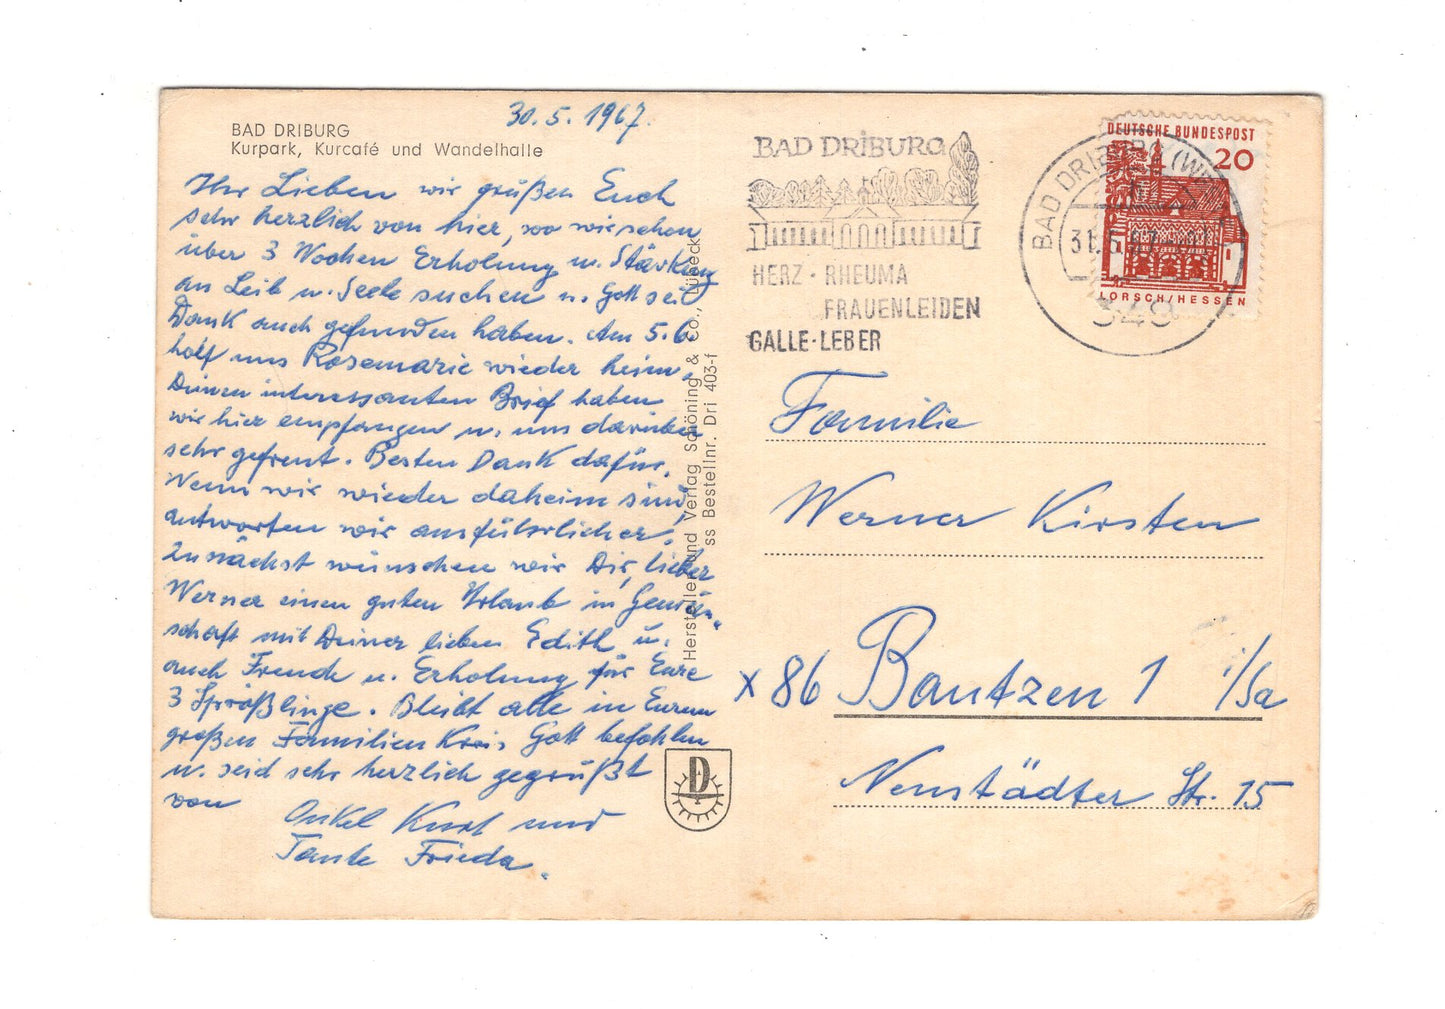 30.5.1967.
BAD DRIBURG
Kurpark, Kurcafé und Wandelhalle
Ihr Lieben wir grüßen Euch
sehr herzlich von hier, wo wir schon
über 3 Wochen Erholung u. Stärkung
an Leib u. Seele suchen u. Gott sei
Dank auch gefunden haben. Am 5.6.
holt uns Rosemarie wieder heim,
Deinen interessanten Brief haben
wir hier empfangen u. uns darüber
sehr gefreut. Besten Dank dafür.
Wenn wir wieder daheim sind,
antworten wir ausführlicher.
Zunächst wünschen wir Dir, lieber
Werner einen guten Urlaub in Gemein-
schaft mit Deiner lieben Edith u.
auch Freude u. Erholung für Eure
3 Sprößlinge. Bleibt alle in Eurem
großen Familien Kreis Gott befohlen
u. seid sehr herzlich gegrüßt
von
Onkel Kurt und
Tante Frieda.
Hersteller und Verlag Schöning & Co., Lübeck
ss Bestellnr. Dri 403-f
BAD DRIBURG
HERZ · RHEUMA
FRAUENLEIDEN
GALLE · LEBER
BAD DRIBURG
349
DEUTSCHE BUNDESPOST
20
LORSCH/HESSEN
Familie
Werner Kirsten
x 86 Bautzen 1 i/Sa
Neustädter Str. 15